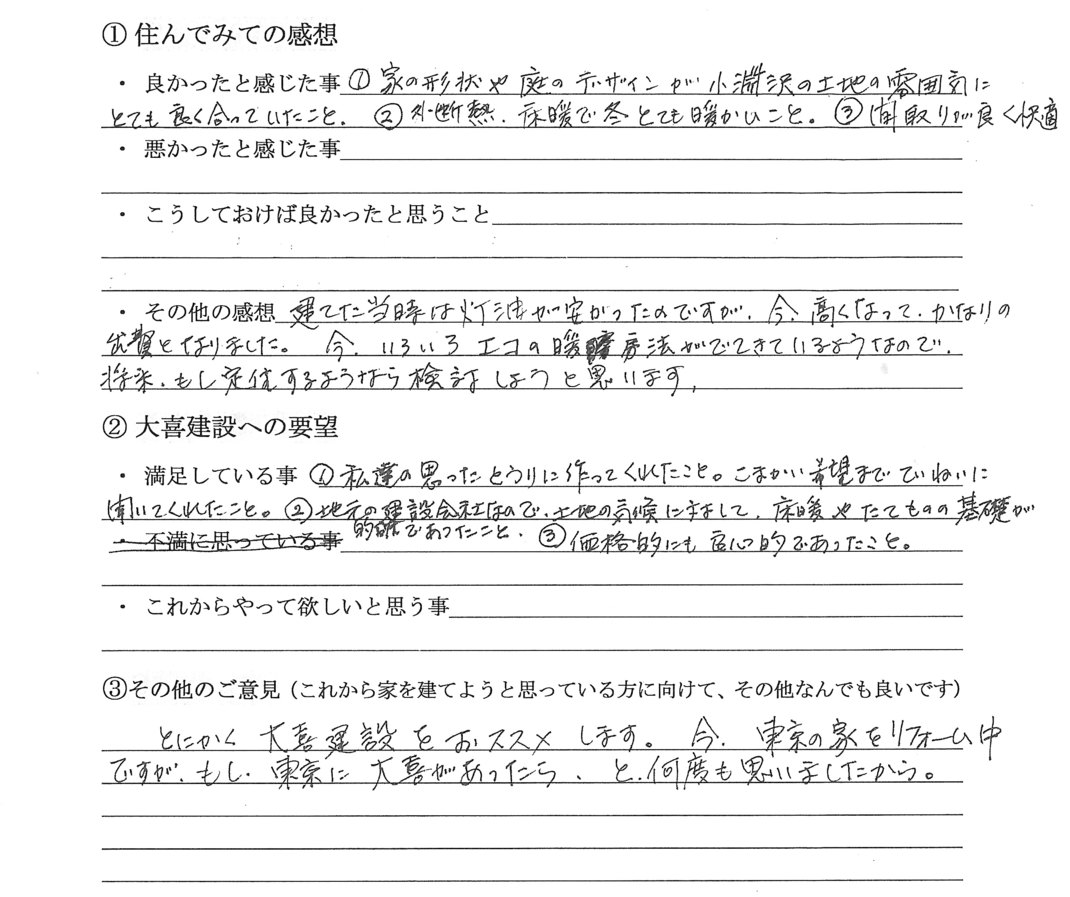 ① 住んでみての感想
・ 良かったと感じた事 ① 家の形状や庭のデザインが小淵沢の土地の雰囲気に
とても良く合っていたこと. ② 外断熱. 床暖で冬とても暖かいこと。 ③ 間取りが良く快適
・ 悪かったと感じた事
・ こうしておけば良かったと思うこと
・ その他の感想 建てた当時は灯油が安かったのですが、今、高くなって、かなりの
出費となりました。 今、いろいろエコの暖房法がでてきているようなので、
将来、もし定住するようなら検討しようと思います.
② 大喜建設への要望
・ 満足している事 ① 私達の思ったとうりに作ってくれたこと。こまかい希望までていねいに
聞いてくれたこと。② 地元の建設会社なので、土地の気候に対して、床暖やたてものの基礎が
・ 不満に思っている事 的確であったこと. ③ 価格的にも良心的であったこと。
・ これからやって欲しいと思う事
③その他のご意見（これから家を建てようと思っている方に向けて、その他なんでも良いです）
とにかく大喜建設をおススメします。 今、東京の家をリフォーム中
ですが、もし、東京に大喜があったら、と、何度も思いましたから。